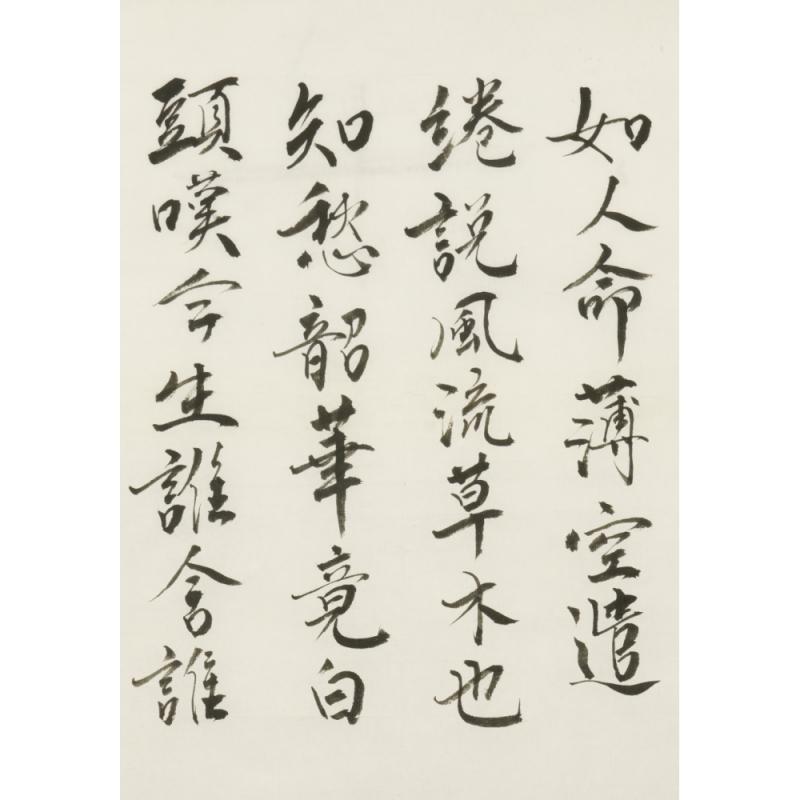 如人命薄空遣
綣說風流草木也
知愁韶華竟白
頭嘆今生誰舍誰